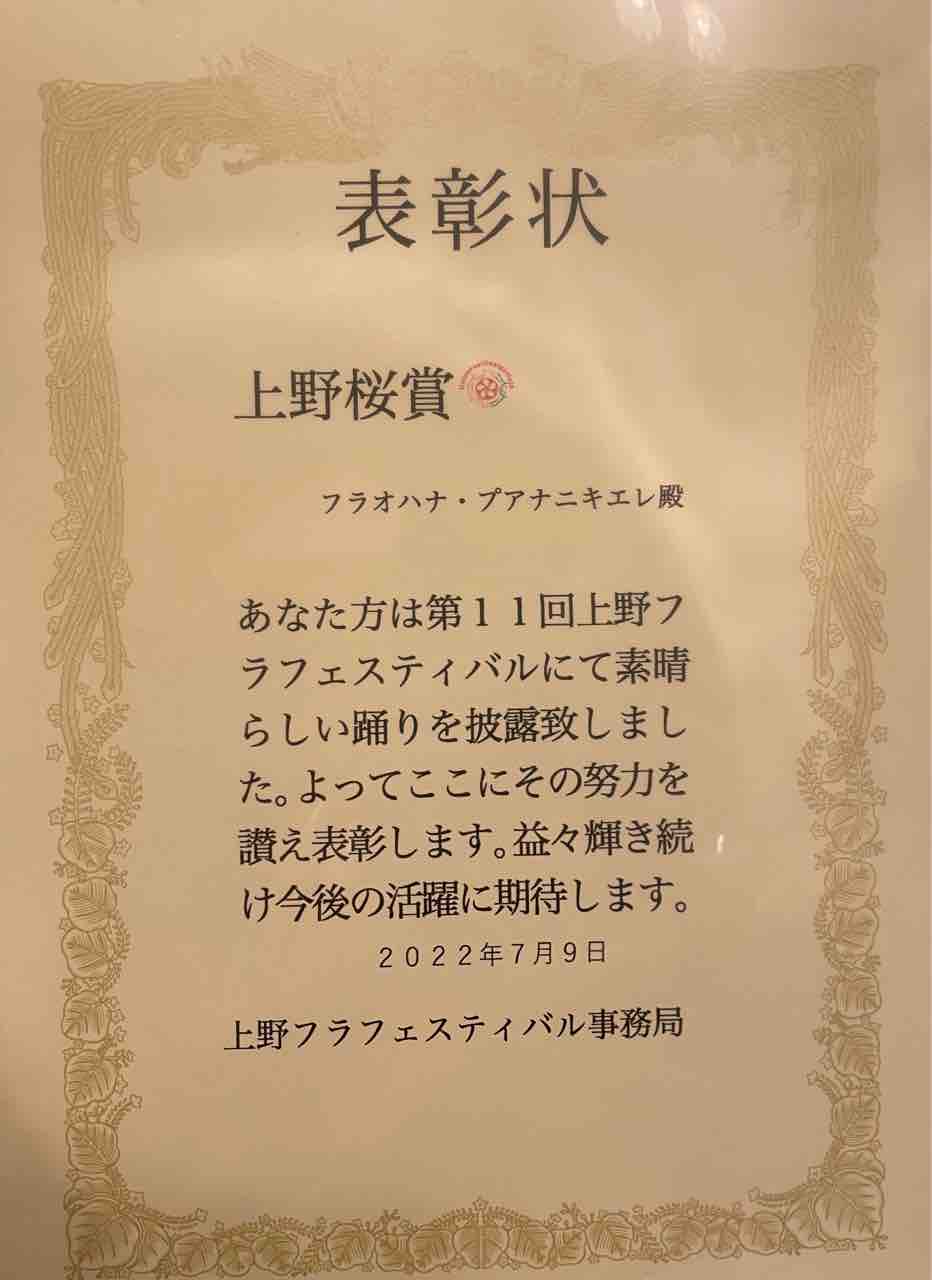 表彰状
上野桜賞
フラオハナ・プアナニキエレ殿
あなた方は第１１回上野フ
ラフェスティバルにて素晴
らしい踊りを披露致しまし
た。よってここにその努力を
讃え表彰します。益々輝き続
け今後の活躍に期待します。
２０２２年７月９日
上野フラフェスティバル事務局